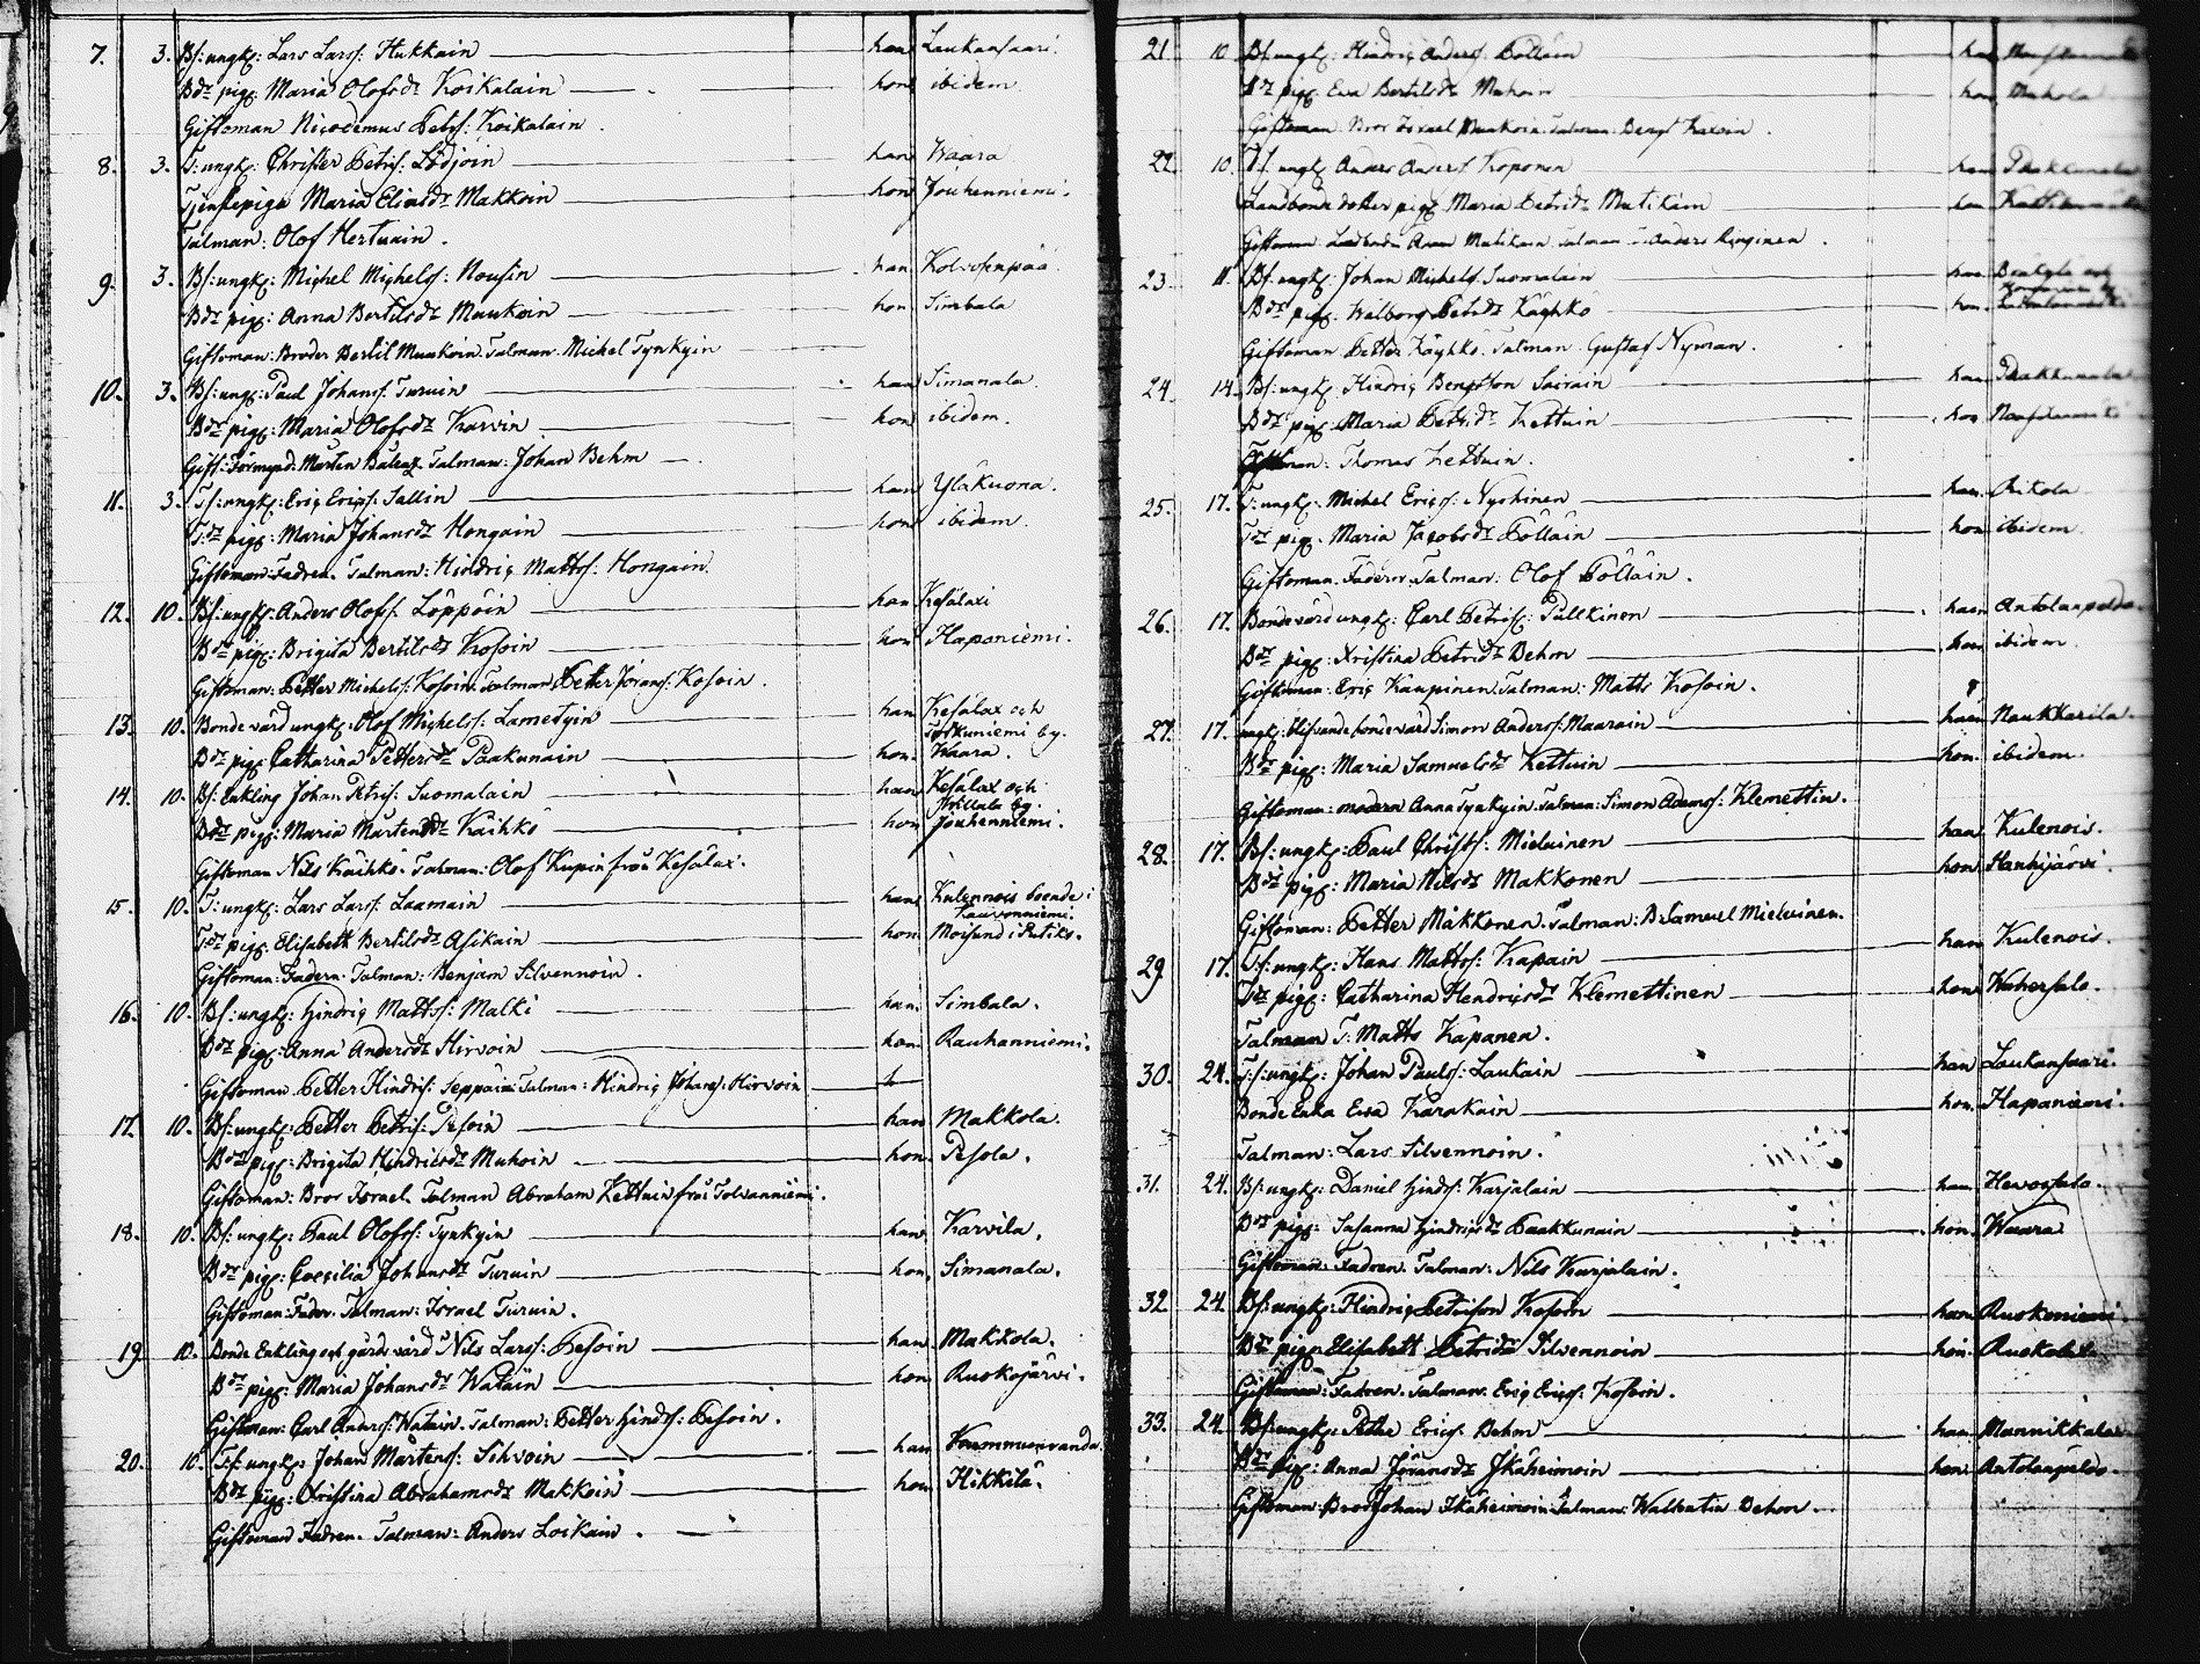 7. 3. Bs: ungk: Lars Larss: Hukkain han Laukansaari.
Bdr pig: Maria Olofsdr Koikalain hon ibidem.
Giftoman Nicodemus Petrs: Koikalain.
8. 3. T: ungk: Christer Petrs: Lödjöin han Waara
Tjenstepiga Maria Eliasdr Makkoin hon Jouhenniemi.
Talman: Olof Hertuain.
9. 3. Bs: ungk: Michel Michelss: Nousin han Kolvosenpää.
Bdr pig: Anna Bertilsdr Muukoin hon Simbala
Giftoman: Broder Bertil Muukoin. Talman. Michel Tynkyin
10. 3. Bs: ungk: Paul Johanss: Turuin han Simanala.
Bdr pig: Maria Olofsdr Karvin hon ibidem.
Gift: Förmynd: Mårten Talman: Johan Behm
11. 3. Ts: ungk: Eric Ericss: Sallin han Yläkuona.
Tdr pig: Maria Johansdr Hongain hon ibidem.
Giftoman: Fadren. Talman: Hindric Mattss: Hongain.
12. 10. Bs: ungk: Anders Olofss: Löppöin han Kesälaxi
Bdr pig: Brigita Bertilsdr Kosoin hon Haponiemi.
Giftoman: Petter Michelss: Kosoin. Talman Petter Jörans: Kosoin.
13. 10. Bonde värd ungk: Olof Michelss: Lametyin han Kesälax och
Totkuniemi by.
Bdr pig: Catharina Pettersdr Paakunain hon. Waara.
14. 10. Bs: Enkling Johan Petrs: Suomalain han Kesälax och
by.
Bdr pig: Maria Mårtensdr Käihkö hon Jouhenniemi.
Giftoman Nils Käihkö. Talman: Olof Kupin från Kesälax.
15. 10. T: ungk: Lars Larss: Laamain han Kulennois boende i
Kauvonniemi.
Tdr pig. Elisabeth Bertilsdr Asikain hon. Moisund i Putiko.
Giftoman: Fadern. Talman: Benjam Silvennoin.
16. 10. Bs: ungk: Hindric Mattss: Malki han. Simbala.
Bdr pig: Anna Andersdr Hirvoin hon. Rauhanniemi.
Giftoman Petter Hindrs: Seppäin Talman: Hindric Johans: Hirvoin
17. 10. Bs: ungk: Petter Petrs: Pesoin han Makkola.
Bdr pig: Brigita Hindricsdr Muhoin hon. Pesola.
Giftoman: Bror Israel. Talman Abraham Kettuin från Tolvanniemi.
18. 10. Bs: ungk: Paul Olofss: Tynkyin han. Karvila.
Bdr pig: Coecilia Johansdr Turuin hon. Simanala.
Giftoman: Fader. Talman: Israel Turuin.
19. 10. Bonde Enkling och gårds värd Nils Larss: Pesoin han. Makkola.
Bdr pig: Maria Johansdr Watäin hon. Ruokojärvi.
Giftoman: Carl Anderss: Watain. Talman: Petter Hindss: Pesoin.
20. 10. Ts: ungk: Johan Mårtenss: Sihvoin han Kummunranda
Bdr pig: Christina Abrahamsdr Makkoin hon. Hikkilä.
Giftoman Fadren. Talman: Anders Loikain.
21 10 Bs: ungk: Hindric Anders: Pölläin han
Bdr pig: Ewa Bertilsdr Muhoin hon Muhola
Giftoman. Bror Israel Muukoin. Talman: Bengt
22. 10. Ts. ungk Anders Anderss Koponen han Paakkunala
Landbonde dotter pig: Maria Petridr Mutikain hon
Giftoman: Landbonden Mutikain. Talman Anders
23. 11. Bs: ungk: Johan Michels Suomalain han
Bdr pig. Walborg Petrsdr Käyhkö hon.
Giftoman Petter Käyhkö. Talman Gustaf Nyman.
24. 14. Bs: ungk: Hindric Bengtson Sairain han Paakkunala
Bdr pig: Maria Petrsdr Kettuin hon
Giftoman: Thomas Kettuin.
25. 17. T: ungk: Michel Ericss: Nyrhinen han. Aikola
Tdr pig. Maria Jacobsdr Pölläin hon ibidem.
Giftoman. Fadern. Talman: Olof Pölläin.
26. 17. Bonde värd ungk: Carl Petrs: Pulkkinen han Antolanpelda.
Bdr pig: Kristina Petridr Behm hon ibidem.
Giftoman: Eric Kaupinen. Talman: Matts Kosoin.
27. 17. ungk: blifvande bonde värd Simon Anderss: Maarain han Naukkarila.
Bdr pig: Maria Samuelsdr Kettuin hon. ibidem.
Giftoman: modern Anna Tynkyin. Talman: Simon Adams: Klemettin.
28. 17. Bs: ungk: Paul Christs: Mielvinen han Kulenois.
Bdr pig: Maria Nilsdr Makkonen hon. Hanhijärvi.
Giftoman: Petter Makkonen. Talman: B: Samuel Mielvinen.
29 17. Ts: ungk: Hans Mattss: Kapain han Kulenois.
Tdr pig: Catharina Hendricsdr Klemettinen hon. Wahersalo.
Talman T. Matts Kapanen.
30. 24. Ts: ungk: Johan Paulss: Laukain han Laukansaari.
Bonde Enka Ewa Karakain hon. Hapaniemi.
Talman: Lars Silvennoin.
31. 24. Bs: ungk: Daniel Hindss: Karjalain han. Hevossalo.
Bdr pig: Susanna Hindricsdr Paakkunain hon. Waara
Giftoman: Fadren. Talman: Nils Karjalain.
32. 24. Bs: ungk: Hindric Petrison Kosoin han. Ruokoniemi.
Bdr pig: Elisabett Petridr Silvennoin hon.
Giftoman: Fadren. Talman. Eric Ericss: Kosoin.
33. 24. Bs: ungk: Petter Ericss. Behm han. Mannikkala
Bdr pig: Anna Jöransdr Ikäheimoin hon. Antolanpeldo.
Giftoman: Brod: Johan Ikäheimoin. Talman. Behm.